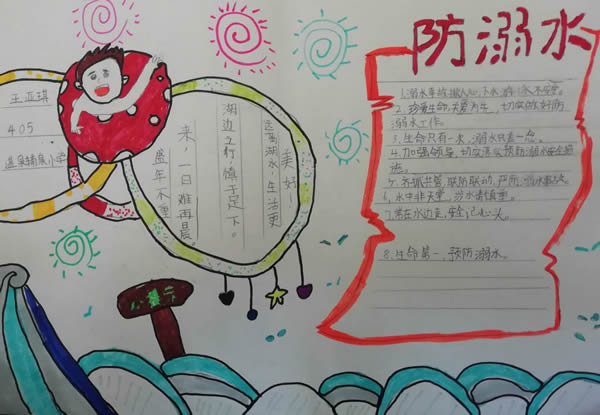 防溺水
王亚琪
405
小学
盛年不重
来,一日难再晨。
湖边之行,慎于足下。
远离湖水,生活更
美好!
1.溺水事故揪人心,下水游泳不
2.珍爱生命,关爱学生,切实做好防
溺水工作。
3.生命只有一次,溺水只在一念。
4.加强领导,切实落实预防溺水安全措
施。
5.齐抓共管,联防联动,严防溺水事故。
6.水中非天堂,涉水请慎重。
7.常在水边走,安全记心头。
8.生命第一,预防溺水。